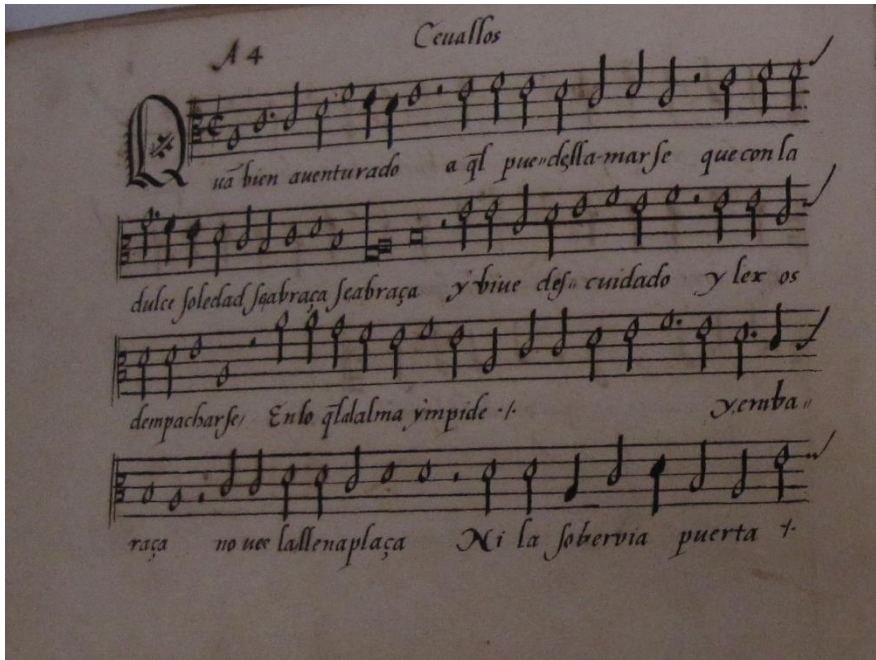 Ceuallos
A 4
Quā bien auenturado a q̄l pue〃dellamarse que con la
dulce soledad seabraça seabraça y biue des〃cuidado y lex os
dempacharse/ Enlo q̄l dalma ympide ·/· y,emba〃
raça no uee lallenaplaça Ni la sobervia puerta ·/·